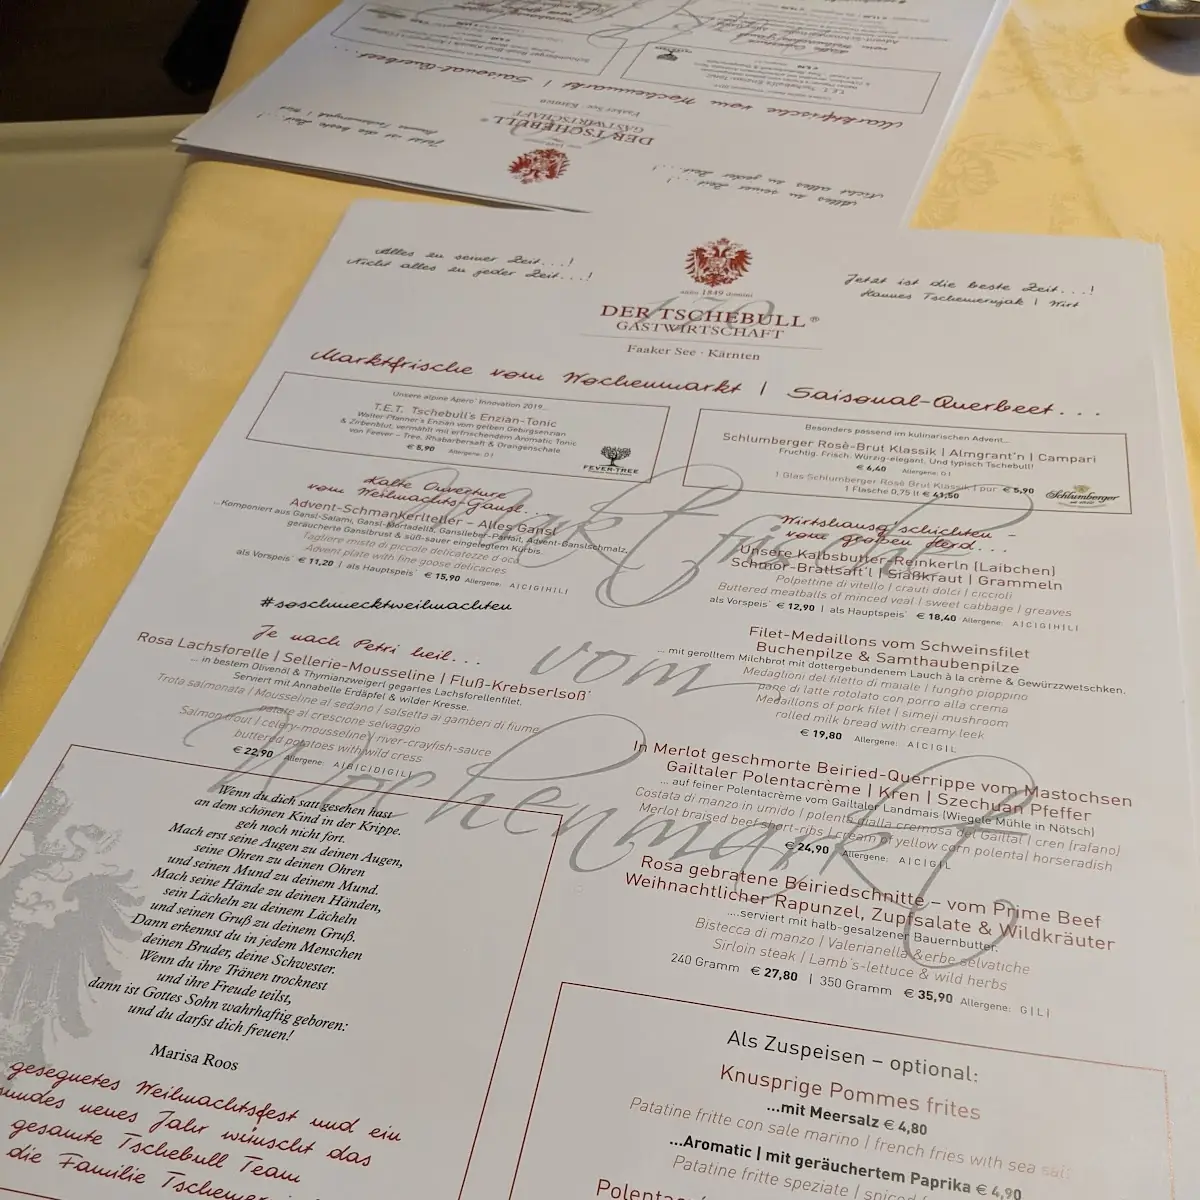 Alles zu seiner Zeit...!
Nicht alles zu jeder Zeit...!
Jetzt ist die beste Zeit...!
Hannes Tschemernjak | Wirt
anno 1849 domini
170
DER TSCHEBULL®
GASTWIRTSCHAFT
Faaker See · Kärnten
Marktfrische vom Wochenmarkt | Saisonal-Querbeet...
Unsere alpine Apero' Innovation 2019...
T.E.T. Tschebull's Enzian-Tonic
Walter Pfanner's Enzian vom gelben Gebirgsenzian
& Zirbenblut, vermählt mit erfrischendem Aromatic Tonic
von Fever - Tree, Rhabarbersaft & Orangenschale
€ 8,90 Allergene: O1
FEVER-TREE
Besonders passend im kulinarischen Advent...
Schlumberger Rosè-Brut Klassik | Almgrant'n | Campari
Fruchtig. Frisch. Würzig-elegant. Und typisch Tschebull!
€ 6,40 Allergene: O1
1 Glas Schlumberger Rosè Brut Klassik | pur € 5,90
1 Flasche 0,75 lt € 41,50
Schlumberger
Markt frische
vom
Wochenmarkt
Kalte Ouvertüre
vom Weihnachts-Gansl...
Advent-Schmankerlteller – Alles Gansl
...Komponiert aus Gansl-Salami, Gansl-Mortadella, Gansleber-Parfait, Advent-Ganslschmalz,
geräucherte Ganslbrust & süß-sauer eingelegtem Kürbis.
Tagliere misto di piccole delicatezze d'oca
Advent plate with fine goose delicacies
als Vorspeis´ € 11,20 | als Hauptspeis´ € 15,90 Allergene: A|C|G|H|L|
#soschmecktweihnachten
Je nach Petri heil...
Rosa Lachsforelle | Sellerie-Mousseline | Fluß-Krebserlsoß'
... in bestem Olivenöl & Thymianzweigerl gegartes Lachsforellenfilet.
Serviert mit Annabelle Erdäpfel & wilder Kresse.
Trota salmonata | Mousseline al sedano | salsetta ai gamberi di fiume
patate al crescione selvaggio
Salmon trout | celery-mousseline | river-crayfish-sauce
buttered potatoes with wild cress
€ 22,90 Allergene: A|B|C|D|G|L|
Wenn du dich satt gesehen hast
an dem schönen Kind in der Krippe,
geh noch nicht fort.
Mach erst seine Augen zu deinen Augen,
seine Ohren zu deinen Ohren
und seinen Mund zu deinem Mund.
Mach seine Hände zu deinen Händen,
sein Lächeln zu deinem Lächeln
und seinen Gruß zu deinem Gruß.
Dann erkennst du in jedem Menschen
deinen Bruder, deine Schwester.
Wenn du ihre Tränen trocknest
und ihre Freude teilst,
dann ist Gottes Sohn wahrhaftig geboren:
und du darfst dich freuen!
Marisa Roos
gesegnetes Weihnachtsfest und ein
neues Jahr wünscht das
gesamte Tschebull Team
die Familie
Wirtshausg'schichten -
vom großen Herd...
Unsere Kalbsbutter-Reinkerln (Laibchen)
Schmor-Bratlsaft'l | Siaßkraut | Grammeln
Polpettine di vitello | crauti dolci | ciccioli
Buttered meatballs of minced veal | sweet cabbage | greaves
als Vorspeis´ € 12,90 | als Hauptspeis´ € 18,40 Allergene: A|C|G|H|L|
Filet-Medaillons vom Schweinsfilet
Buchenpilze & Samthaubenpilze
... mit gerolltem Milchbrot mit dottergebundenem Lauch à la crème & Gewürzzwetschken.
Medaglioni del filetto di maiale | fungho pioppino
pane di latte rotolato con porro alla crema
Medaillons of pork filet | simeji mushroom
rolled milk bread with creamy leek
€ 19,80 Allergene: A|C|G|L
In Merlot geschmorte Beiried-Querrippe vom Mastochsen
Gailtaler Polentacrème | Kren | Szechuan Pfeffer
... auf feiner Polentacrème vom Gailtaler Landmais (Wiegele Mühle in Nötsch)
Costata di manzo in umido | polenta gialla cremosa del Gailtal | cren (rafano)
Merlot braised beef short-ribs | cream of yellow corn polenta | horseradish
€ 24,90 Allergene: A|C|G|L
Rosa gebratene Beiriedschnitte – vom Prime Beef
Weihnachtlicher Rapunzel, Zupfsalate & Wildkräuter
...serviert mit halb-gesalzener Bauernbutter.
Bistecca di manzo | Valerianella & erbe selvatiche
Sirloin steak | Lamb's-lettuce & wild herbs
240 Gramm € 27,80 | 350 Gramm € 35,90 Allergene: G|L|
Als Zuspeisen – optional:
Knusprige Pommes frites
...mit Meersalz € 4,80
Patatine fritte con sale marino | french fries with sea salt
...Aromatic | mit geräuchertem Paprika € 4,90
Patatine fritte speziate | spiced